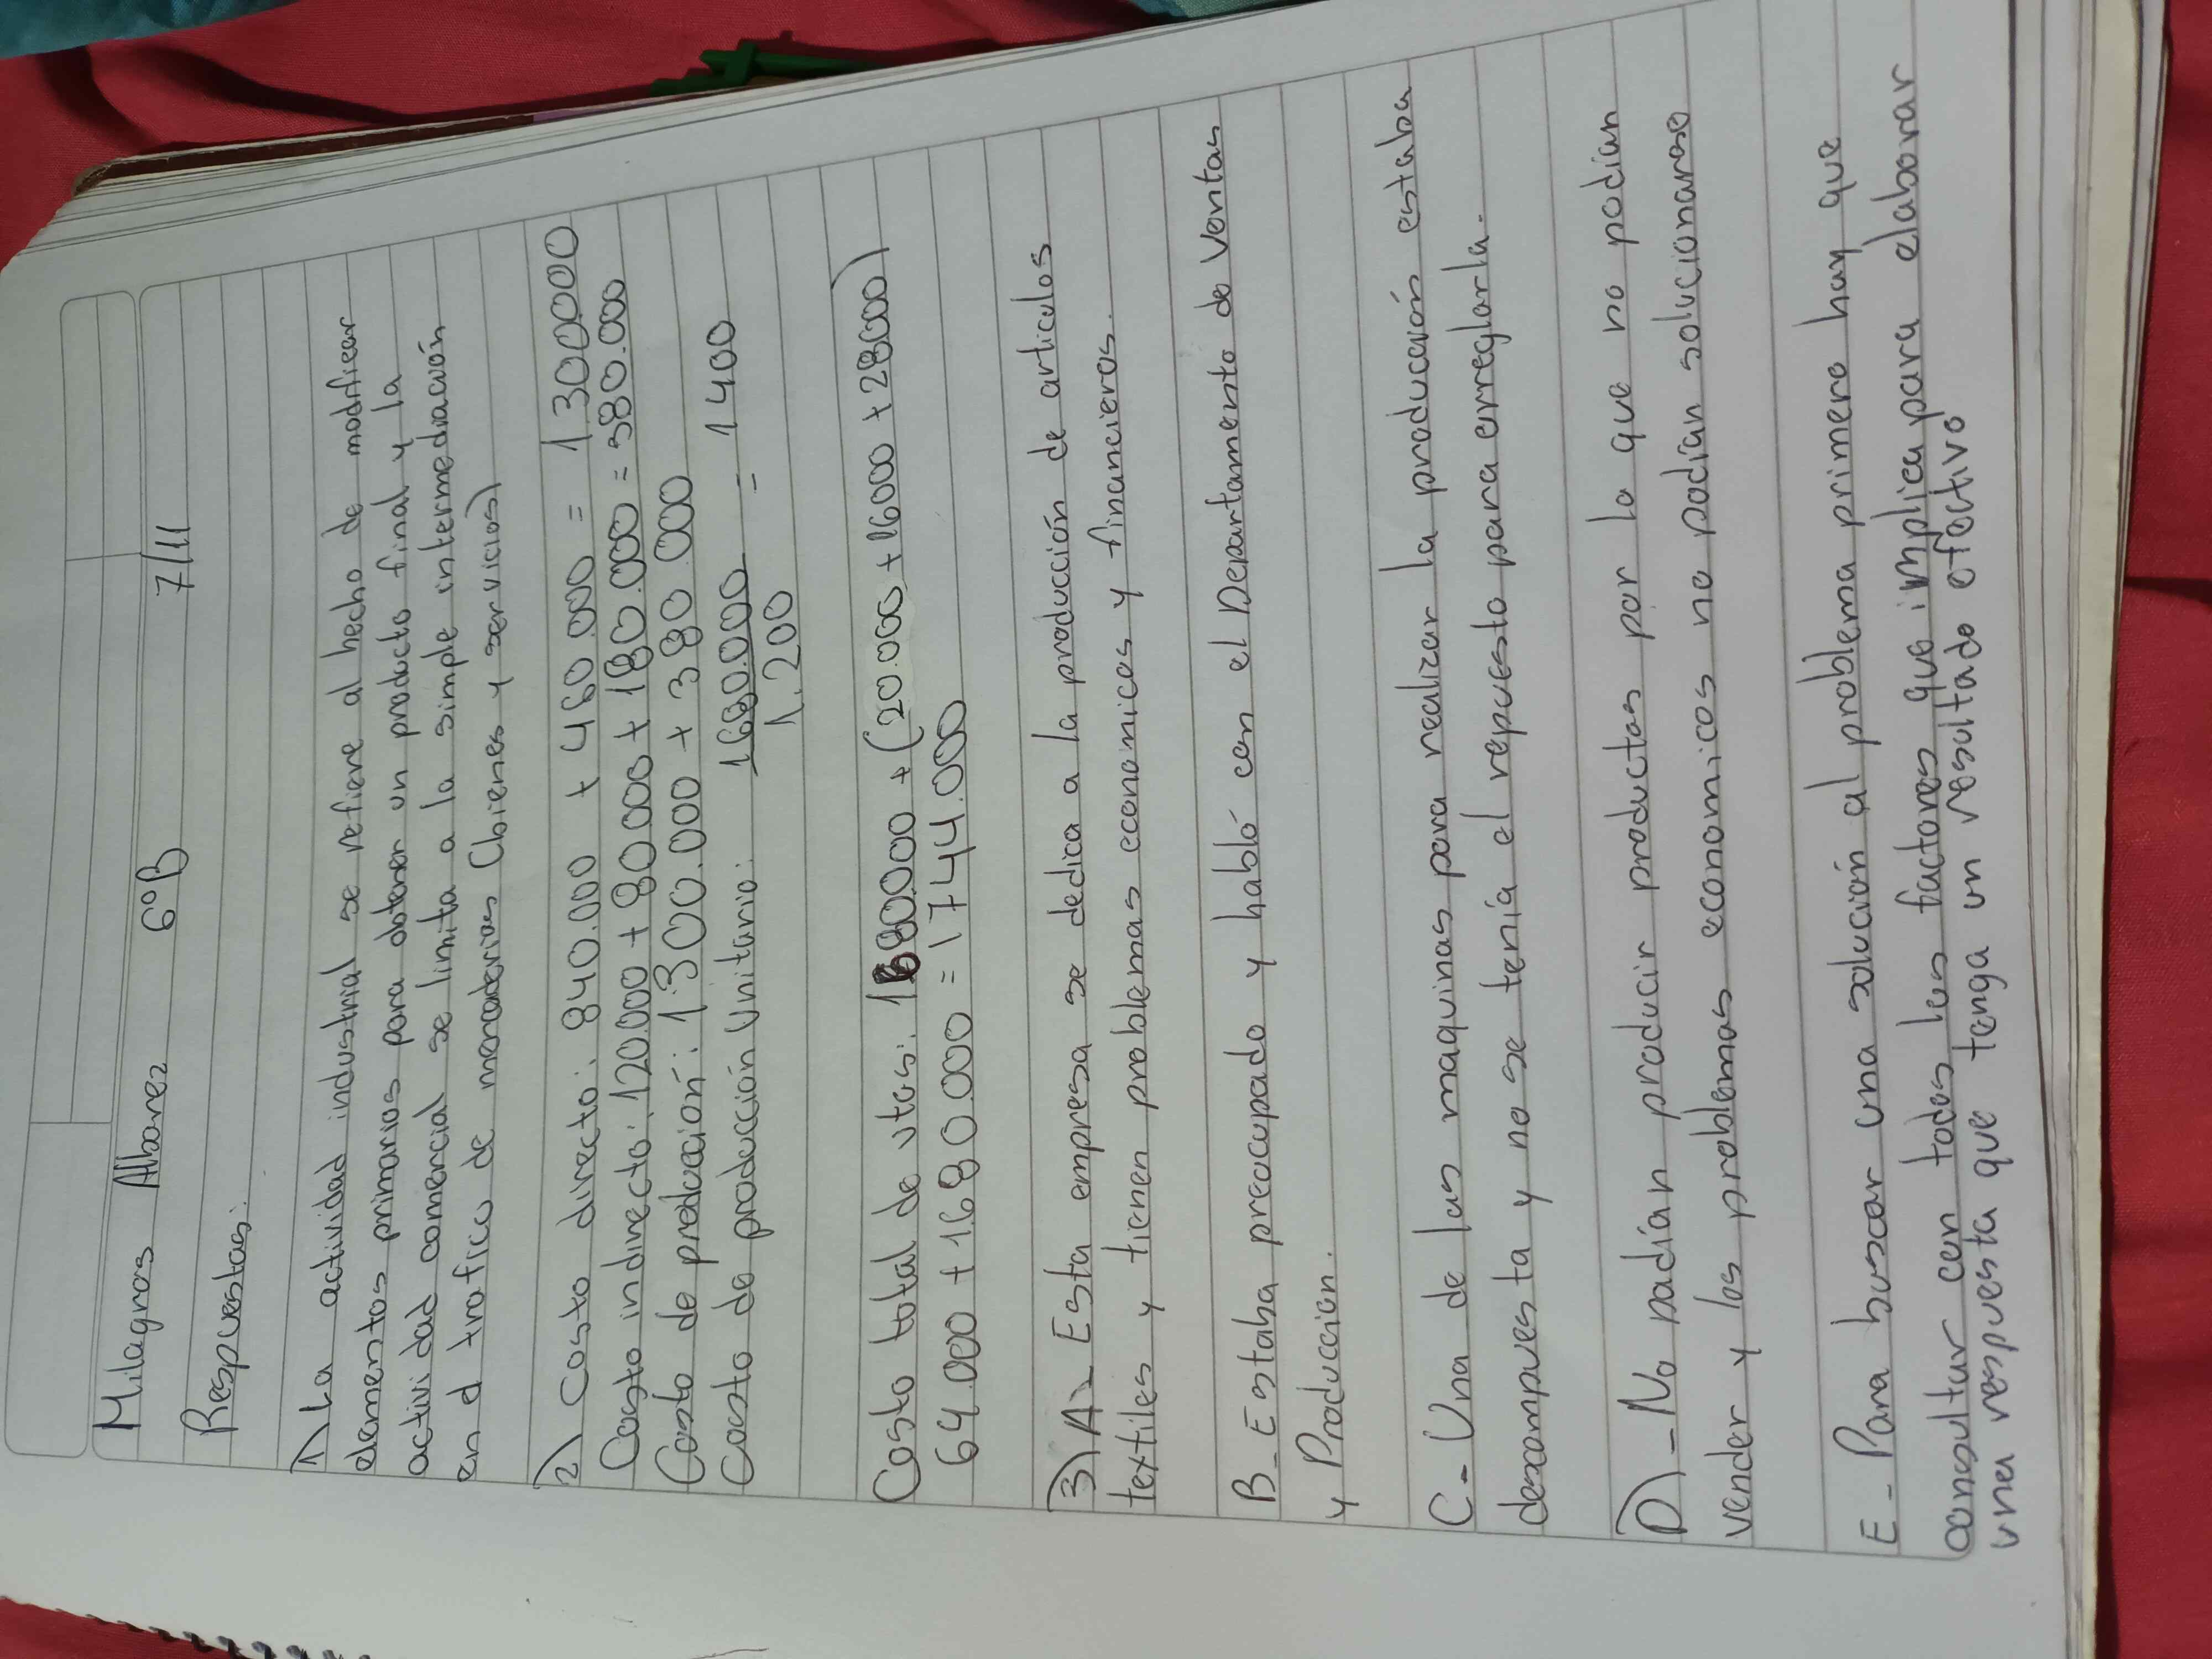 Milagros Albarez 6°B 7/11
Respuestas:
1) La actividad industrial se refiere al hecho de modificar
elementos primarios para obtener un producto final y la
actividad comercial se limita a la simple intermediación
en el trafico de mercaderias (bienes y servicios)
2) Costo directo: 840.000 + 460.000 = 1300000
Costo indirecto: 120.000 + 80.000 + 180.000 = 380.000
Costo de producción: 1.300.000 + 380.000
Costo de producción Unitario: 1680.000 = 1400
1.200
Costo total de vtas: 1680.000 + (20.000 + 16000 + 28000)
64.000 + 1.680.000 = 1744.000
3) A- Esta empresa se dedica a la producción de articulos
textiles y tienen problemas economicos y financieros.
B- Estaba preocupado y habló con el Departamento de Ventas
y Produccion.
C- Una de las maquinas para realizar la producción estaba
descompuesta y no se tenía el repuesto para arreglarla.
D)- No podían producir productos por lo que no podían
vender y los problemas economicos no podían solucionarse
E- Para buscar una solución al problema primero hay que
consultar con todos los factores que implica para elaborar
una respuesta que tenga un resultado efectivo